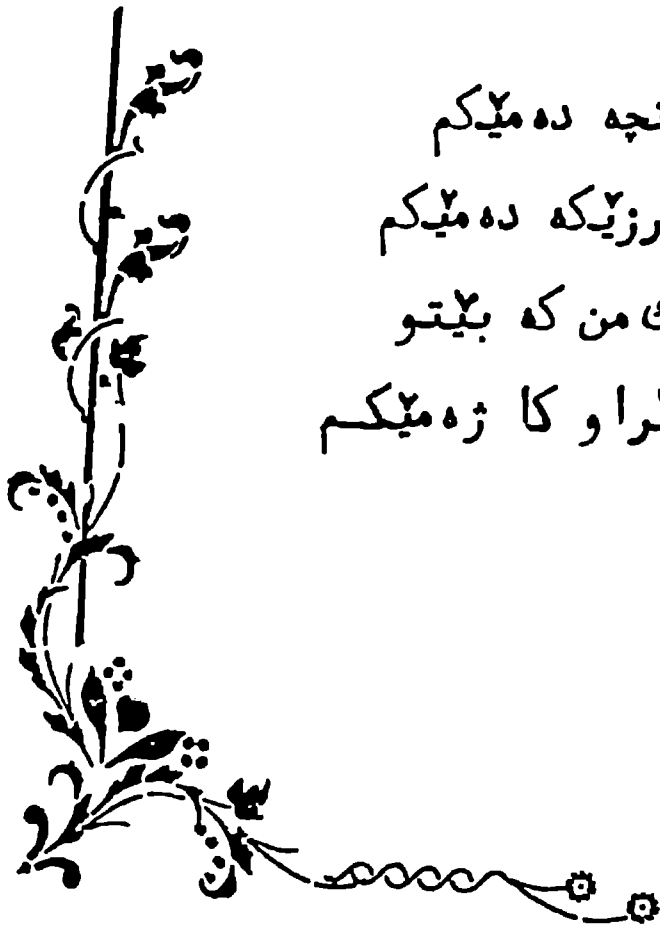 نچە دەمێکم
رزێکە دەمێکم
ك من کە بێتو
را و کا ژەمێکم